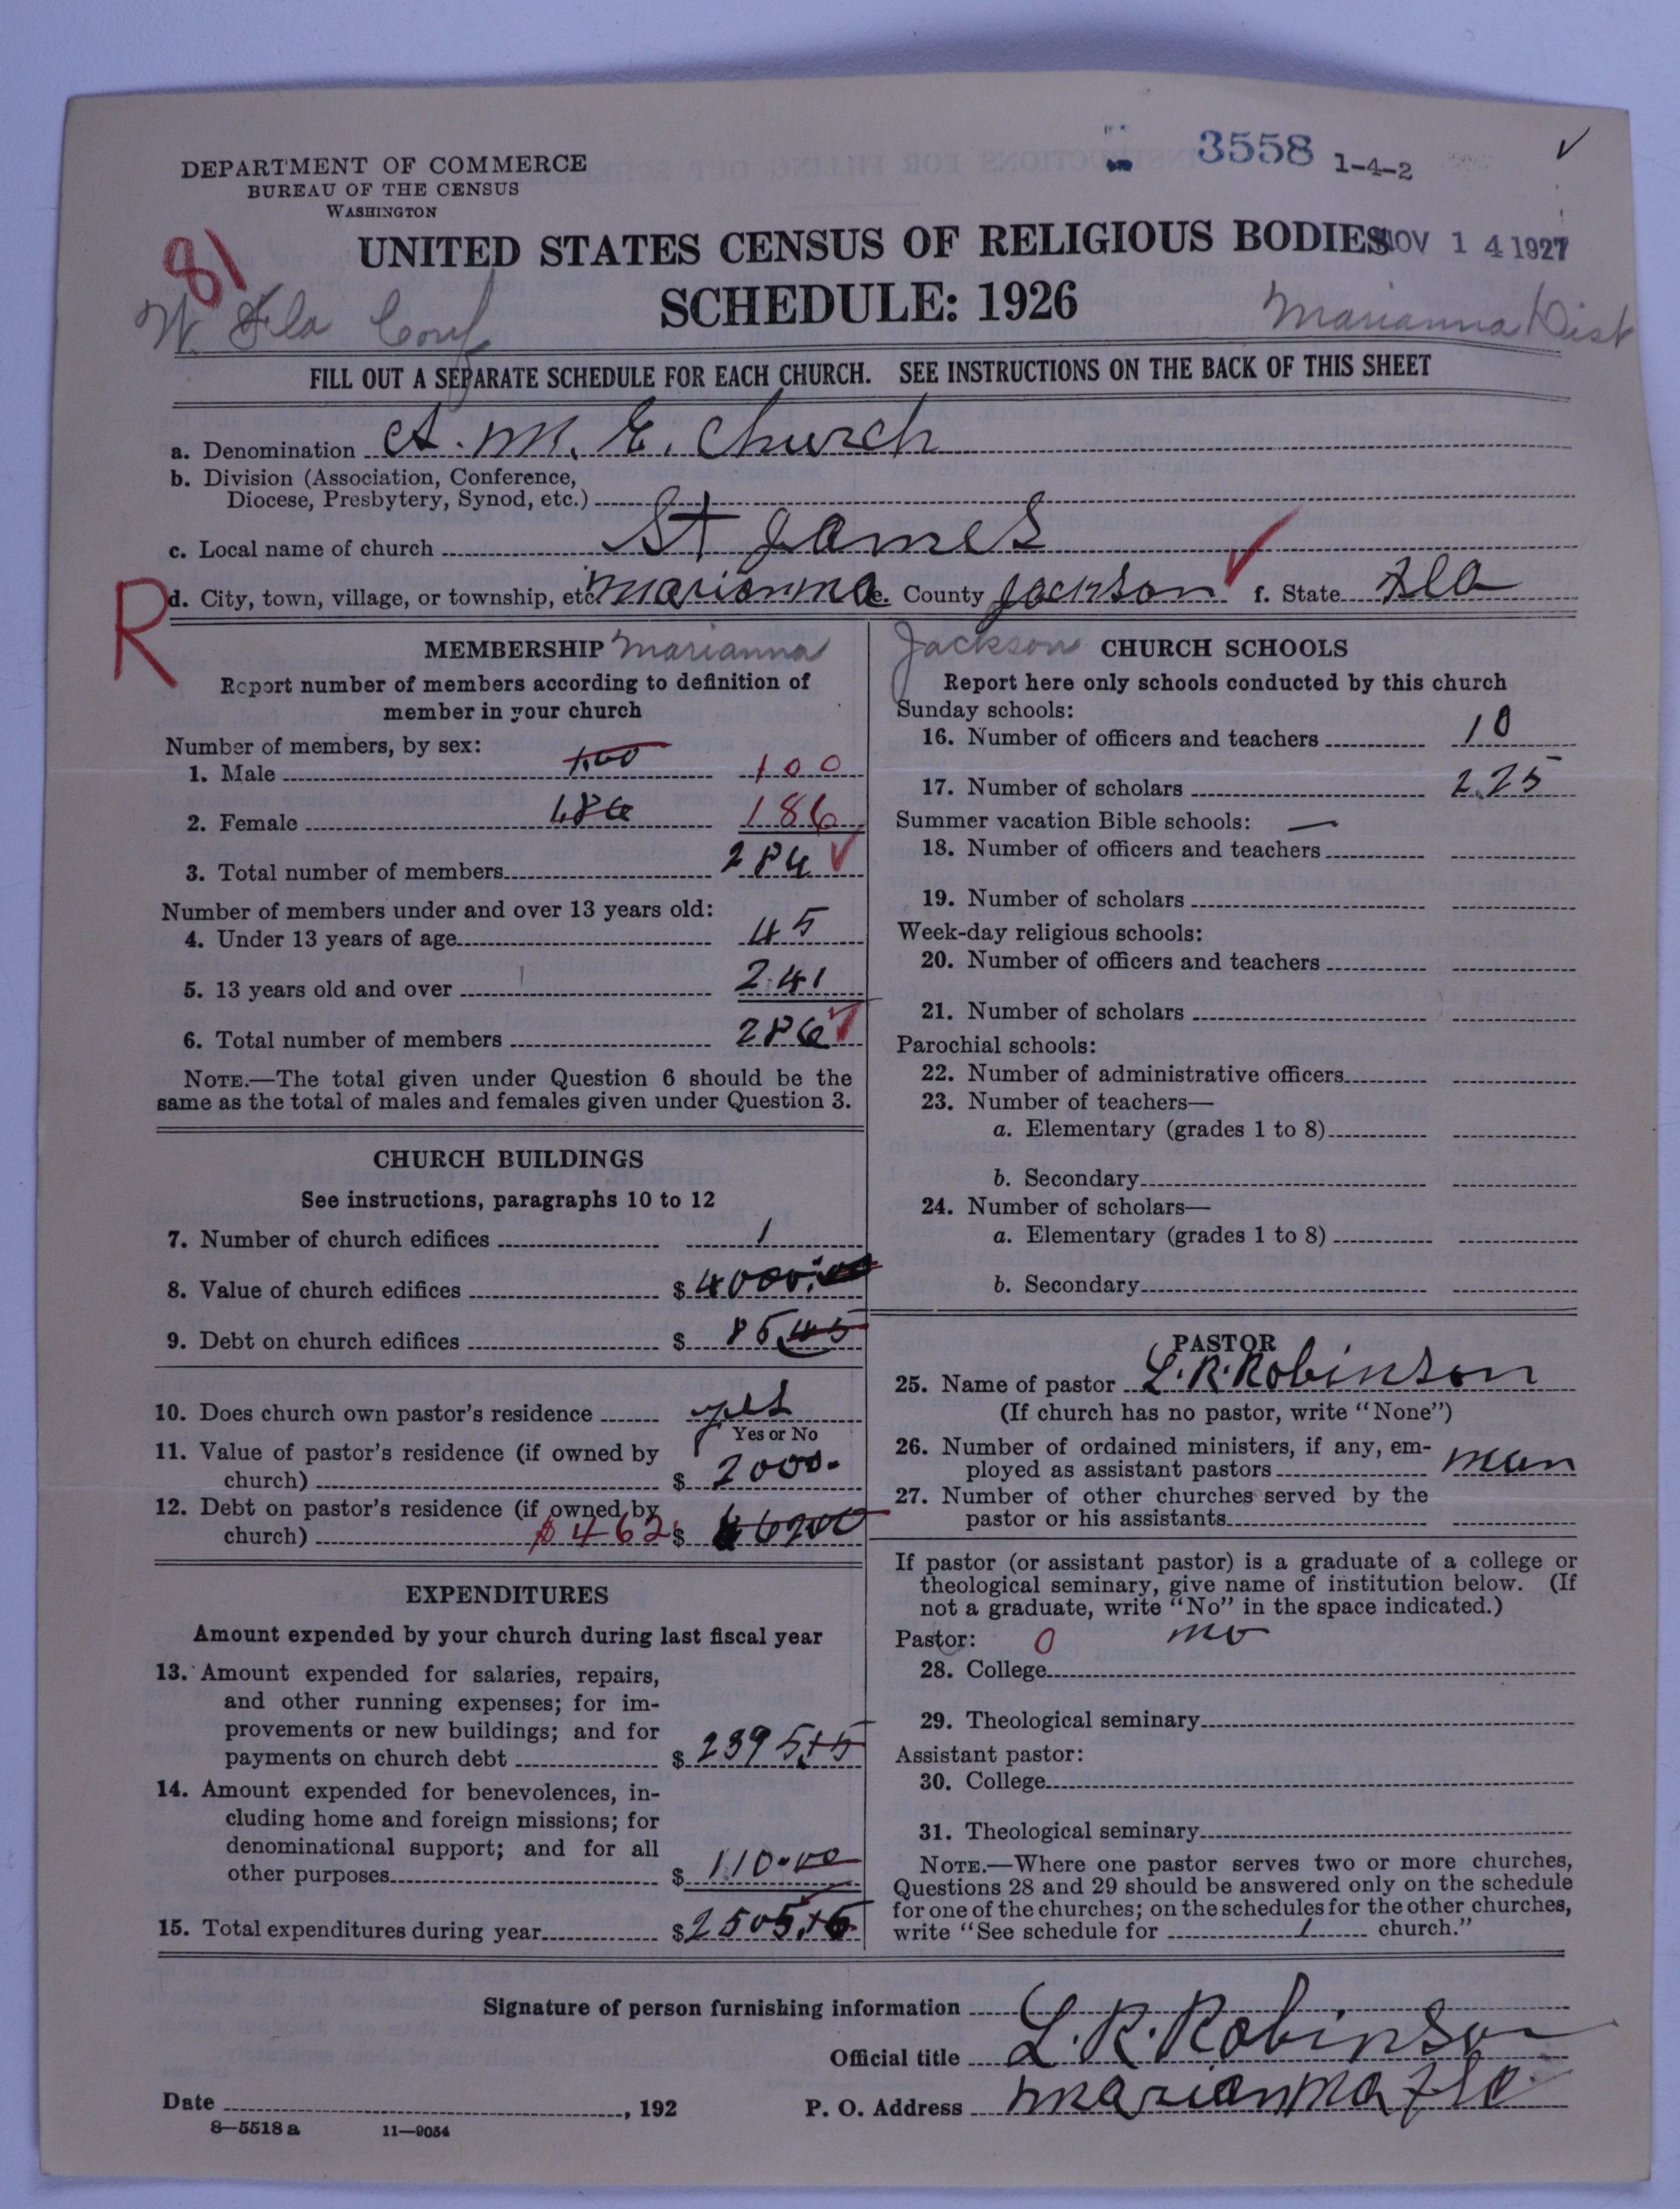 3558 1-4-2
DEPARTMENT OF COMMERCE
BUREAU OF THE CENSUS
WASHINGTON
81
UNITED STATES CENSUS OF RELIGIOUS BODIES
NOV 14 1927
SCHEDULE: 1926
W. Fla Conf
Marianna Dist
FILL OUT A SEPARATE SCHEDULE FOR EACH CHURCH. SEE INSTRUCTIONS ON THE BACK OF THIS SHEET
a. Denomination A. M. E. Church
b. Division (Association, Conference,
Diocese, Presbytery, Synod, etc.)
c. Local name of church St James
R
d. City, town, village, or township, etc. Marianna e. County Jackson f. State Fla
MEMBERSHIP Marianna
Report number of members according to definition of
member in your church
Number of members, by sex:
1. Male 100 100
2. Female 186 186
3. Total number of members 286
Number of members under and over 13 years old:
4. Under 13 years of age 45
5. 13 years old and over 241
6. Total number of members 286
NOTE.—The total given under Question 6 should be the
same as the total of males and females given under Question 3.
CHURCH BUILDINGS
See instructions, paragraphs 10 to 12
7. Number of church edifices 1
8. Value of church edifices $ 4000.00
9. Debt on church edifices $ 85.45
10. Does church own pastor's residence yes
Yes or No
11. Value of pastor's residence (if owned by
church) $ 2000.
12. Debt on pastor's residence (if owned by
church) $462 $
EXPENDITURES
Amount expended by your church during last fiscal year
13. Amount expended for salaries, repairs,
and other running expenses; for im-
provements or new buildings; and for
payments on church debt $ 2395
14. Amount expended for benevolences, in-
cluding home and foreign missions; for
denominational support; and for all
other purposes $ 110.00
15. Total expenditures during year $ 2505
Jackson CHURCH SCHOOLS
Report here only schools conducted by this church
Sunday schools:
16. Number of officers and teachers 10
17. Number of scholars 225
Summer vacation Bible schools: —
18. Number of officers and teachers
19. Number of scholars
Week-day religious schools:
20. Number of officers and teachers
21. Number of scholars
Parochial schools:
22. Number of administrative officers
23. Number of teachers—
a. Elementary (grades 1 to 8)
b. Secondary
24. Number of scholars—
a. Elementary (grades 1 to 8)
b. Secondary
PASTOR
25. Name of pastor L. R. Robinson
(If church has no pastor, write "None")
26. Number of ordained ministers, if any, em-
ployed as assistant pastors
27. Number of other churches served by the
pastor or his assistants
If pastor (or assistant pastor) is a graduate of a college or
theological seminary, give name of institution below. (If
not a graduate, write "No" in the space indicated.)
Pastor: 0 no
28. College
29. Theological seminary
Assistant pastor:
30. College
31. Theological seminary
NOTE.—Where one pastor serves two or more churches,
Questions 28 and 29 should be answered only on the schedule
for one of the churches; on the schedules for the other churches,
write "See schedule for 1 church."
Signature of person furnishing information
Official title L. R. Robinson
Date , 192 P. O. Address Marianna Fla.
8-5518 a 11-9054